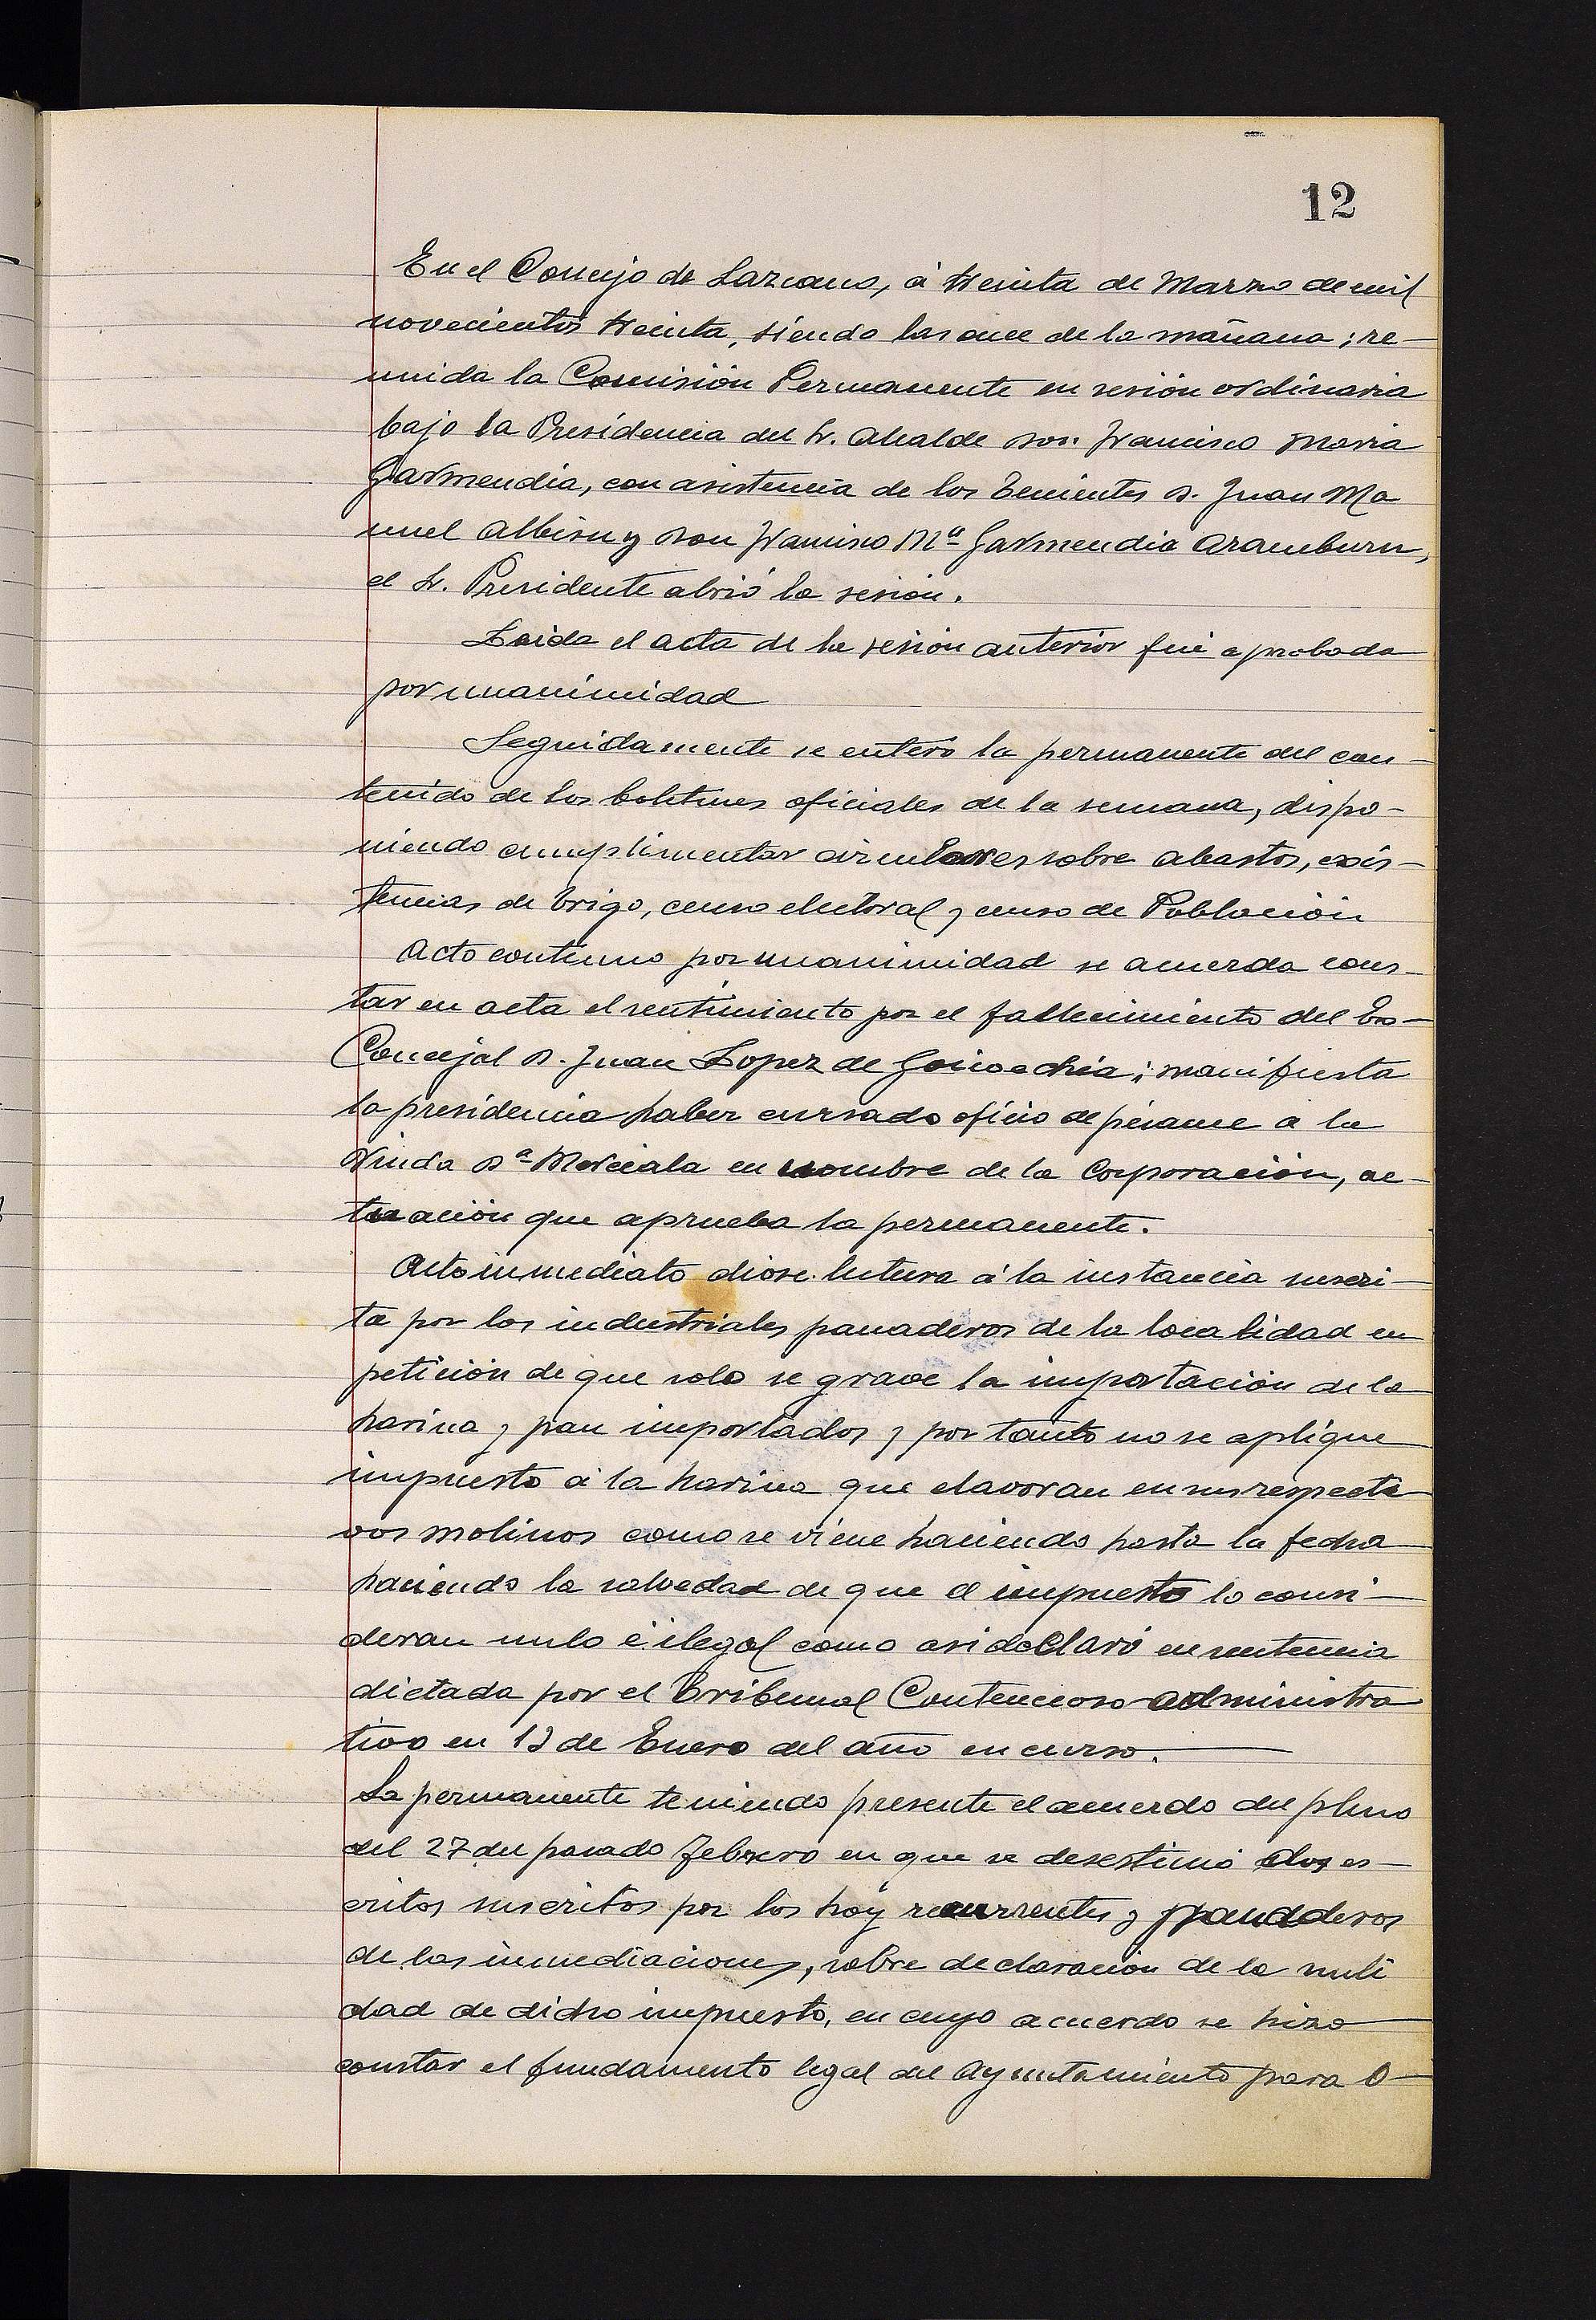 12
En el Concejo de Lazcano, á treinta de Marzo de mil
novecientos treinta, siendo las once de la mañana; re-
unida la Comisión Permanente en sesión ordinaria
bajo la Presidencia del Sr. Alcalde Don Francisco Maria
Garmendia, con asistencia de los Tenientes D. Juan Ma
nuel Albisu y Don Francisco Mª Garmendia Aramburu,
el Sr. Presidente abrió la sesión.
Leida el acta de la sesión anterior fué aprobada
por unanimidad
Seguidamente se enteró la permanente del con-
tenido de los boletines oficiales de la semana, dispo-
niendo cumplimentar circulares sobre abastos, exis-
tencias de trigo, censo electoral y censo de Población
Acto continuo por unanimidad se acuerda cons-
tar en acta el sentimiento por el fallecimiento del Ex-
Concejal D. Juan Lopez de Goicoechea; manifiesta
la presidencia haber cursado oficio de pésame a la
Viuda Dª Marciala en nombre de la Corporación, ac-
tuación que aprueba la permanente.
Acto inmediato diose lectura á la instancia suscri-
ta por los industriales panaderos de la localidad en
petición de que solo se grave la importación de la
harina y pan importados y por tanto no se aplique
impuesto á la harina que elavoran en sus respecti
vos molinos como se viene haciendo hasta la fecha
haciendo la salvedad de que el impuesto lo consi-
deran nulo é ilegal como asi declaró en sentencia
dictada por el Tribunal Contencioso-administra
tivo en 13 de Enero del año en curso.
La permanente teniendo presente el acuerdo del pleno
del 27 del pasado Febrero en que se desestimó dos es-
critos suscritos por los hoy recurrentes y panaderos
de las inmediaciones, sobre declaración de la nuli
dad de dicho impuesto, en cuyo acuerdo se hizo
constar el fundamento legal del Ayuntamiento para o-